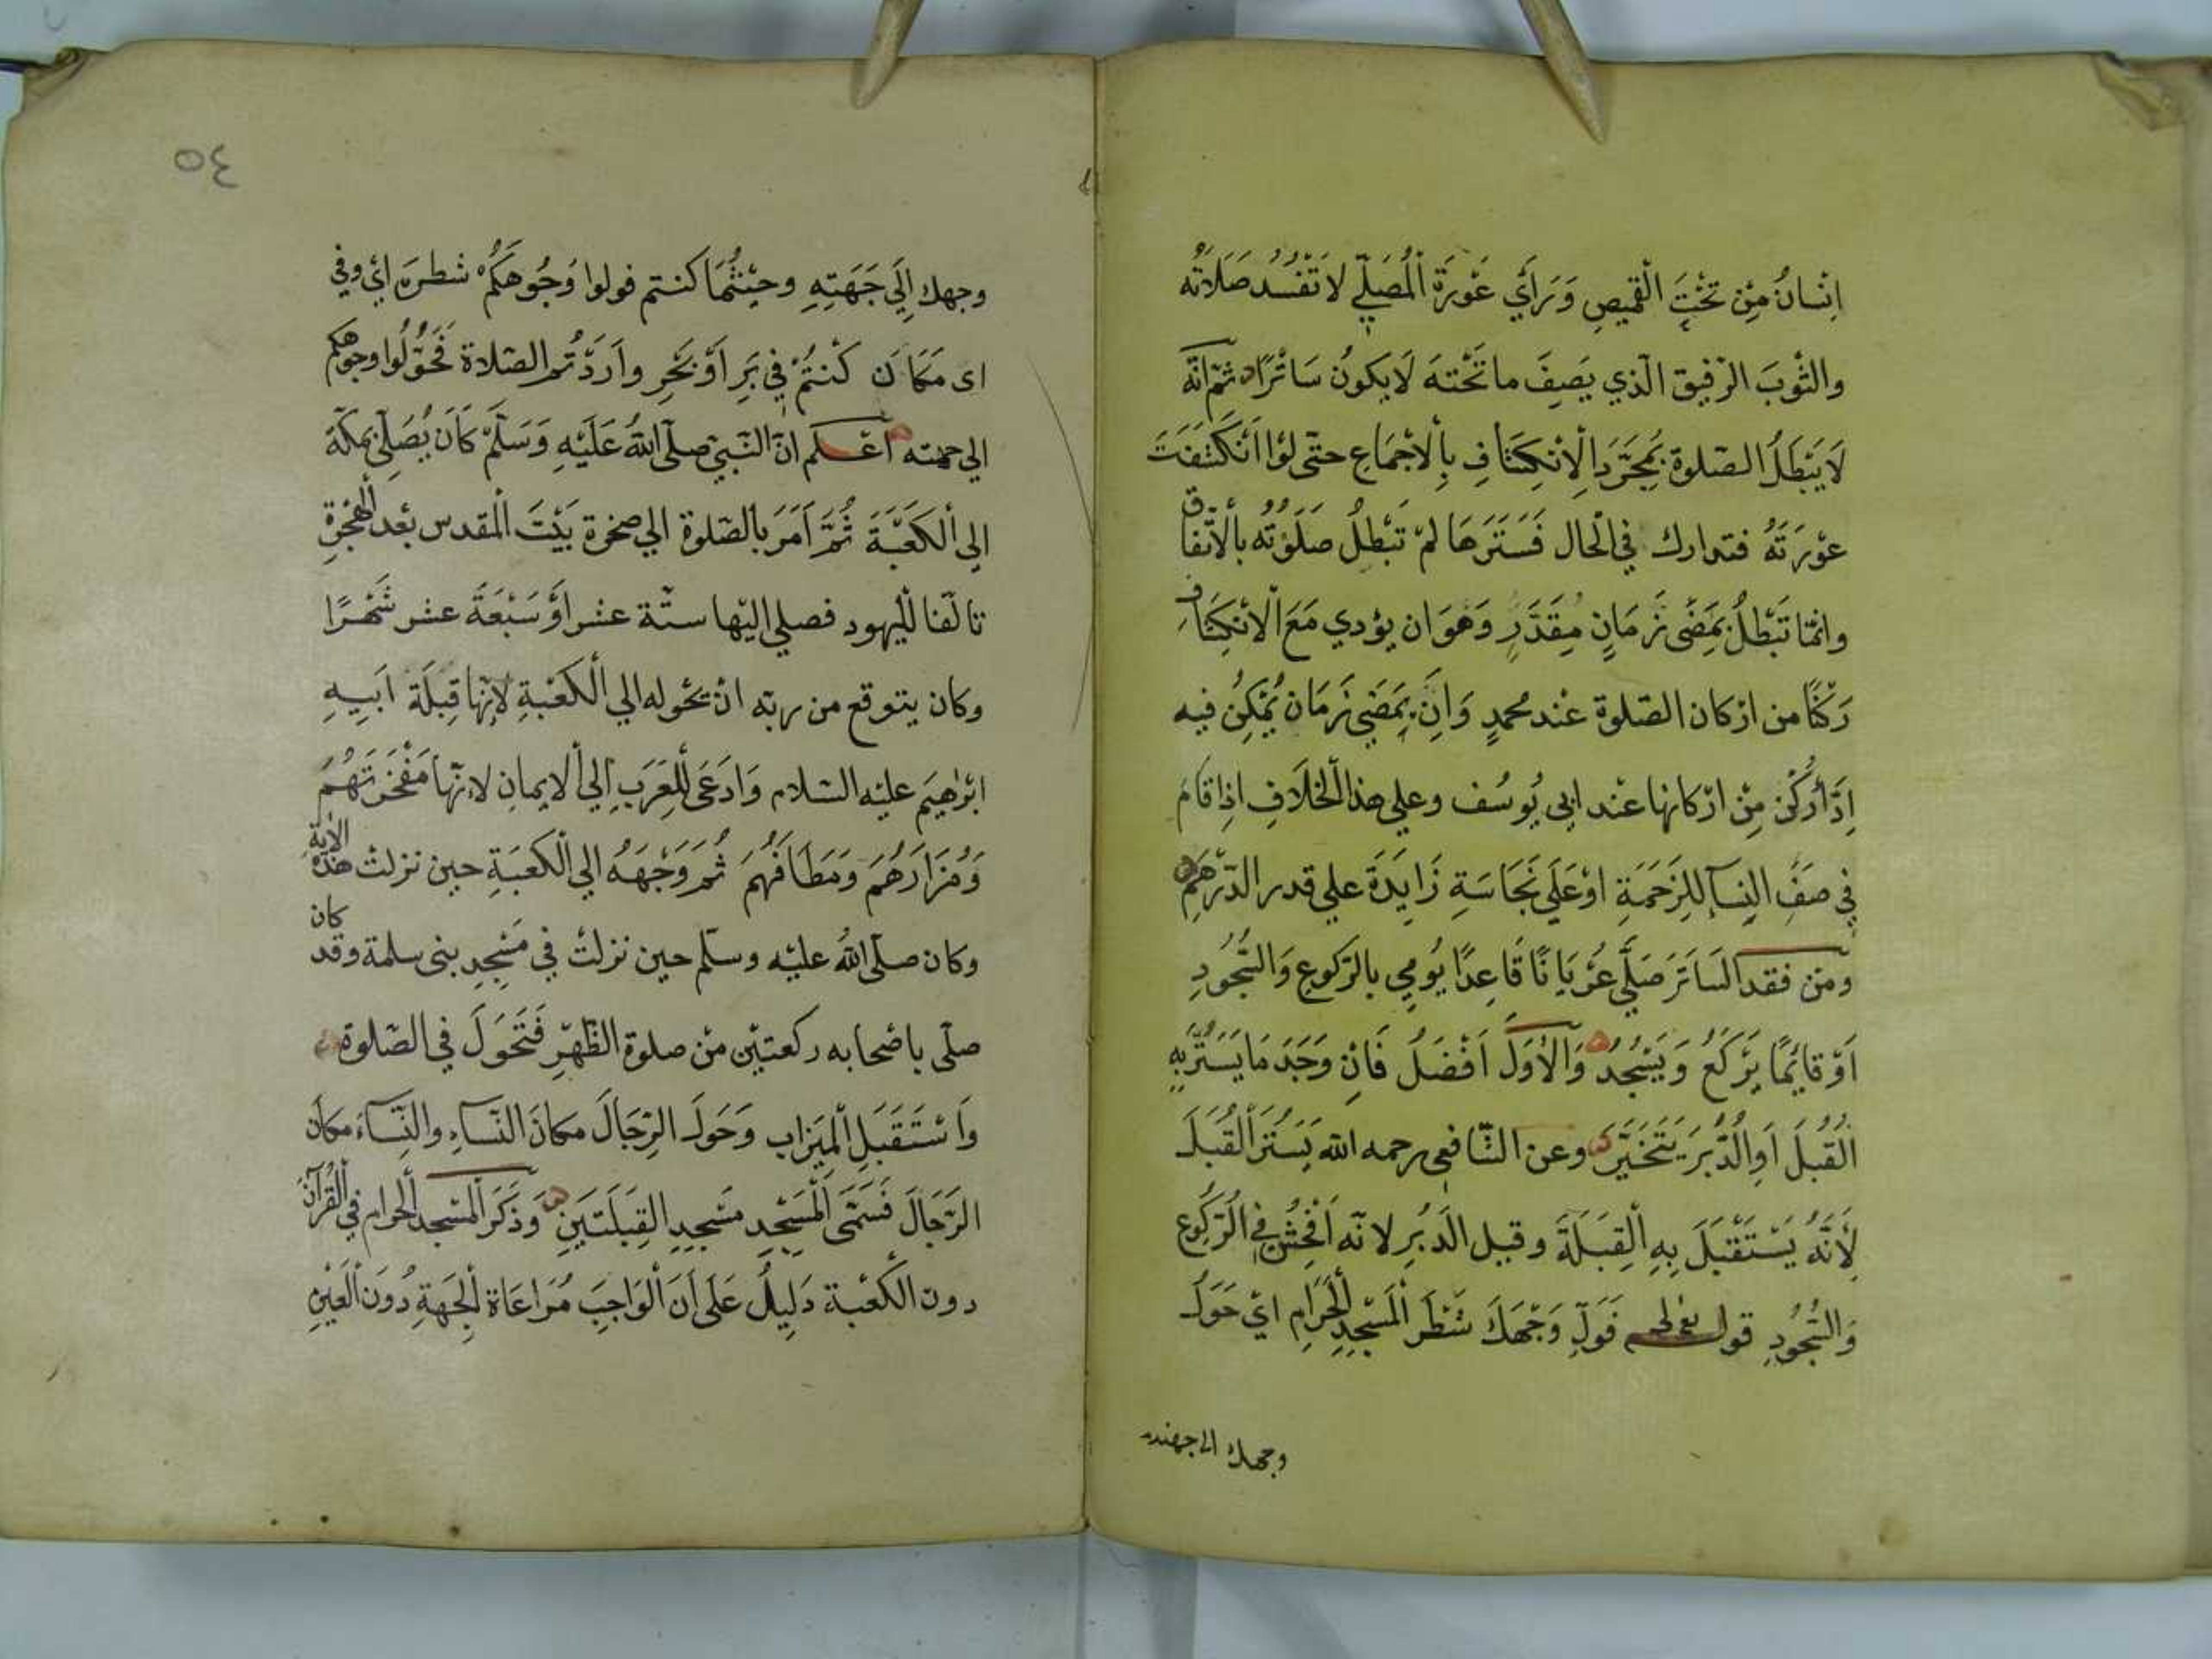 انسان من تحت القميص وراي عورة المصلي لا تفسد صلاته
والثوب الرقيق الذي يصف ما تحته لا يكون ساترا ثم انه
لا يبطل الصلوة بمجرد الانكشاف بالاجماع حتى لو انكشفت
عورته فتدارك في الحال فسترها لم تبطل صلوته بالاتفاق
وانما تبطل بمضى زمان مقدر وهو ان يؤدي مع الانكشاف
ركنا من اركان الصلوة عند محمد وان بمضي زمان يمكن فيه
اد اركن من اركانها عند ابى يوسف وعلي هذا الخلاف اذا قام
في صف النسآ للزحمة او على نجاسة زايدة علي قدر الدرهم
ومن فقد الساتر صلي عريانا قاعدا يومي بالركوع والسجود
او قائما يركع ويسجد والاول افضل فان وجد ما يستر به
القبل او الدبر يتخير وعن الشافعى رحمه الله يستر القبل
لأنه يستقبل به القبلة وقيل الدبر لانه افحش في الركوع
والسجود قوله تعالى فول وجهك شطر المسجد الحرام اي حول
وجهك الى جهته
٥٤
وجهك إلي جهته وحيثما كنتم فولوا وجوهكم شطره اي وفي
اى مكان كنتم في بر أو بحر واردتم الصلاة فحولوا وجوهكم
الي جهته أعلم ان النبي صلى الله عليه وسلم كان يصلى بمكة
إلى الكعبة ثم امر بالصلوة الي صخرة بيت المقدس بعد الهجرة
تالفا لليهود فصلي اليها ستة عشر او سبعة عشر شهرا
وكان يتوقع من ربه ان تحوله الي الكعبة لانها قبلة ابيه
ابرهيم عليه السلام وادعى للعرب إلي الايمان لانها مفخرتهم
ومزارهم ومطافهم ثم وجهه الي الكعبة حين نزلت هذه الاية
وكان صلى الله عليه وسلم حين نزلت في مسجد بنى سلمة وقد كان
صلى باصحابه ركعتين من صلوة الظهر فتحول في الصلوة
واستقبل الميزاب وحول الرجال مكان النساء والنساء مكان
الرجال فسمى المسجد مسجد القبلتين وذكر المسجد الحرام في القرآن
دون الكعبة دليل على أن الواجب مراعاة الجهة دون العين